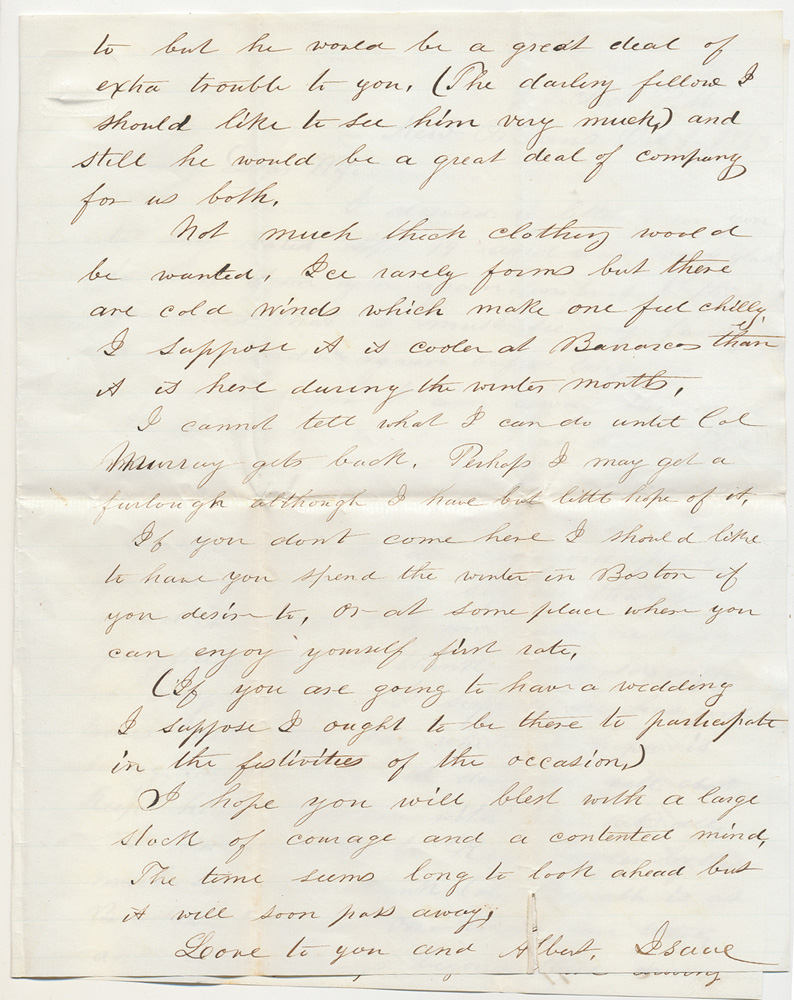 to but he would be a great deal of
extra trouble to you. (The darling fellow I
should like to see him very much,) and
still he would be a great deal of company
for us both.
Not much thick clothing would
be wanted. Ice rarely forms but there
are cold winds which make one feel chilly.
I suppose it is cooler at Barrancas than
it is here during the winter months.
I cannot tell what I can do until Col
Murray gets back. Perhaps I may get a
furlough although I have but little hope of it.
If you dont come here I should like
to have you spend the winter in Boston if
you desire to, Or at some place where you
can enjoy yourself first rate.
(If you are going to have a wedding
I suppose I ought to be there to participate
in the festivities of the occasion.)
I hope you will blest with a large
stock of courage and a contented mind.
The time seems long to look ahead but
it will soon pass away.
Love to you and Albert. Isaac